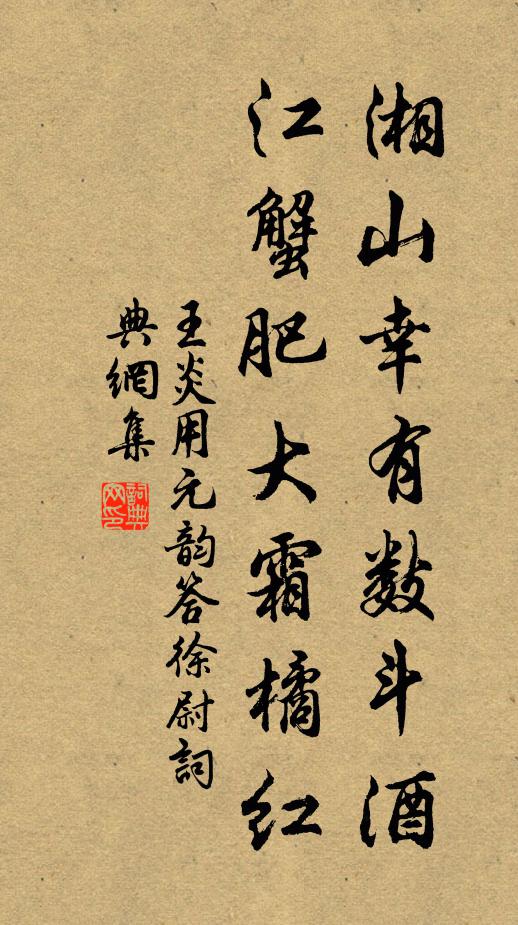 湘山幸有数斗酒
江蟹肥大霜橘红
王炎用元韵答徐尉詞
典網集
詞典
网印